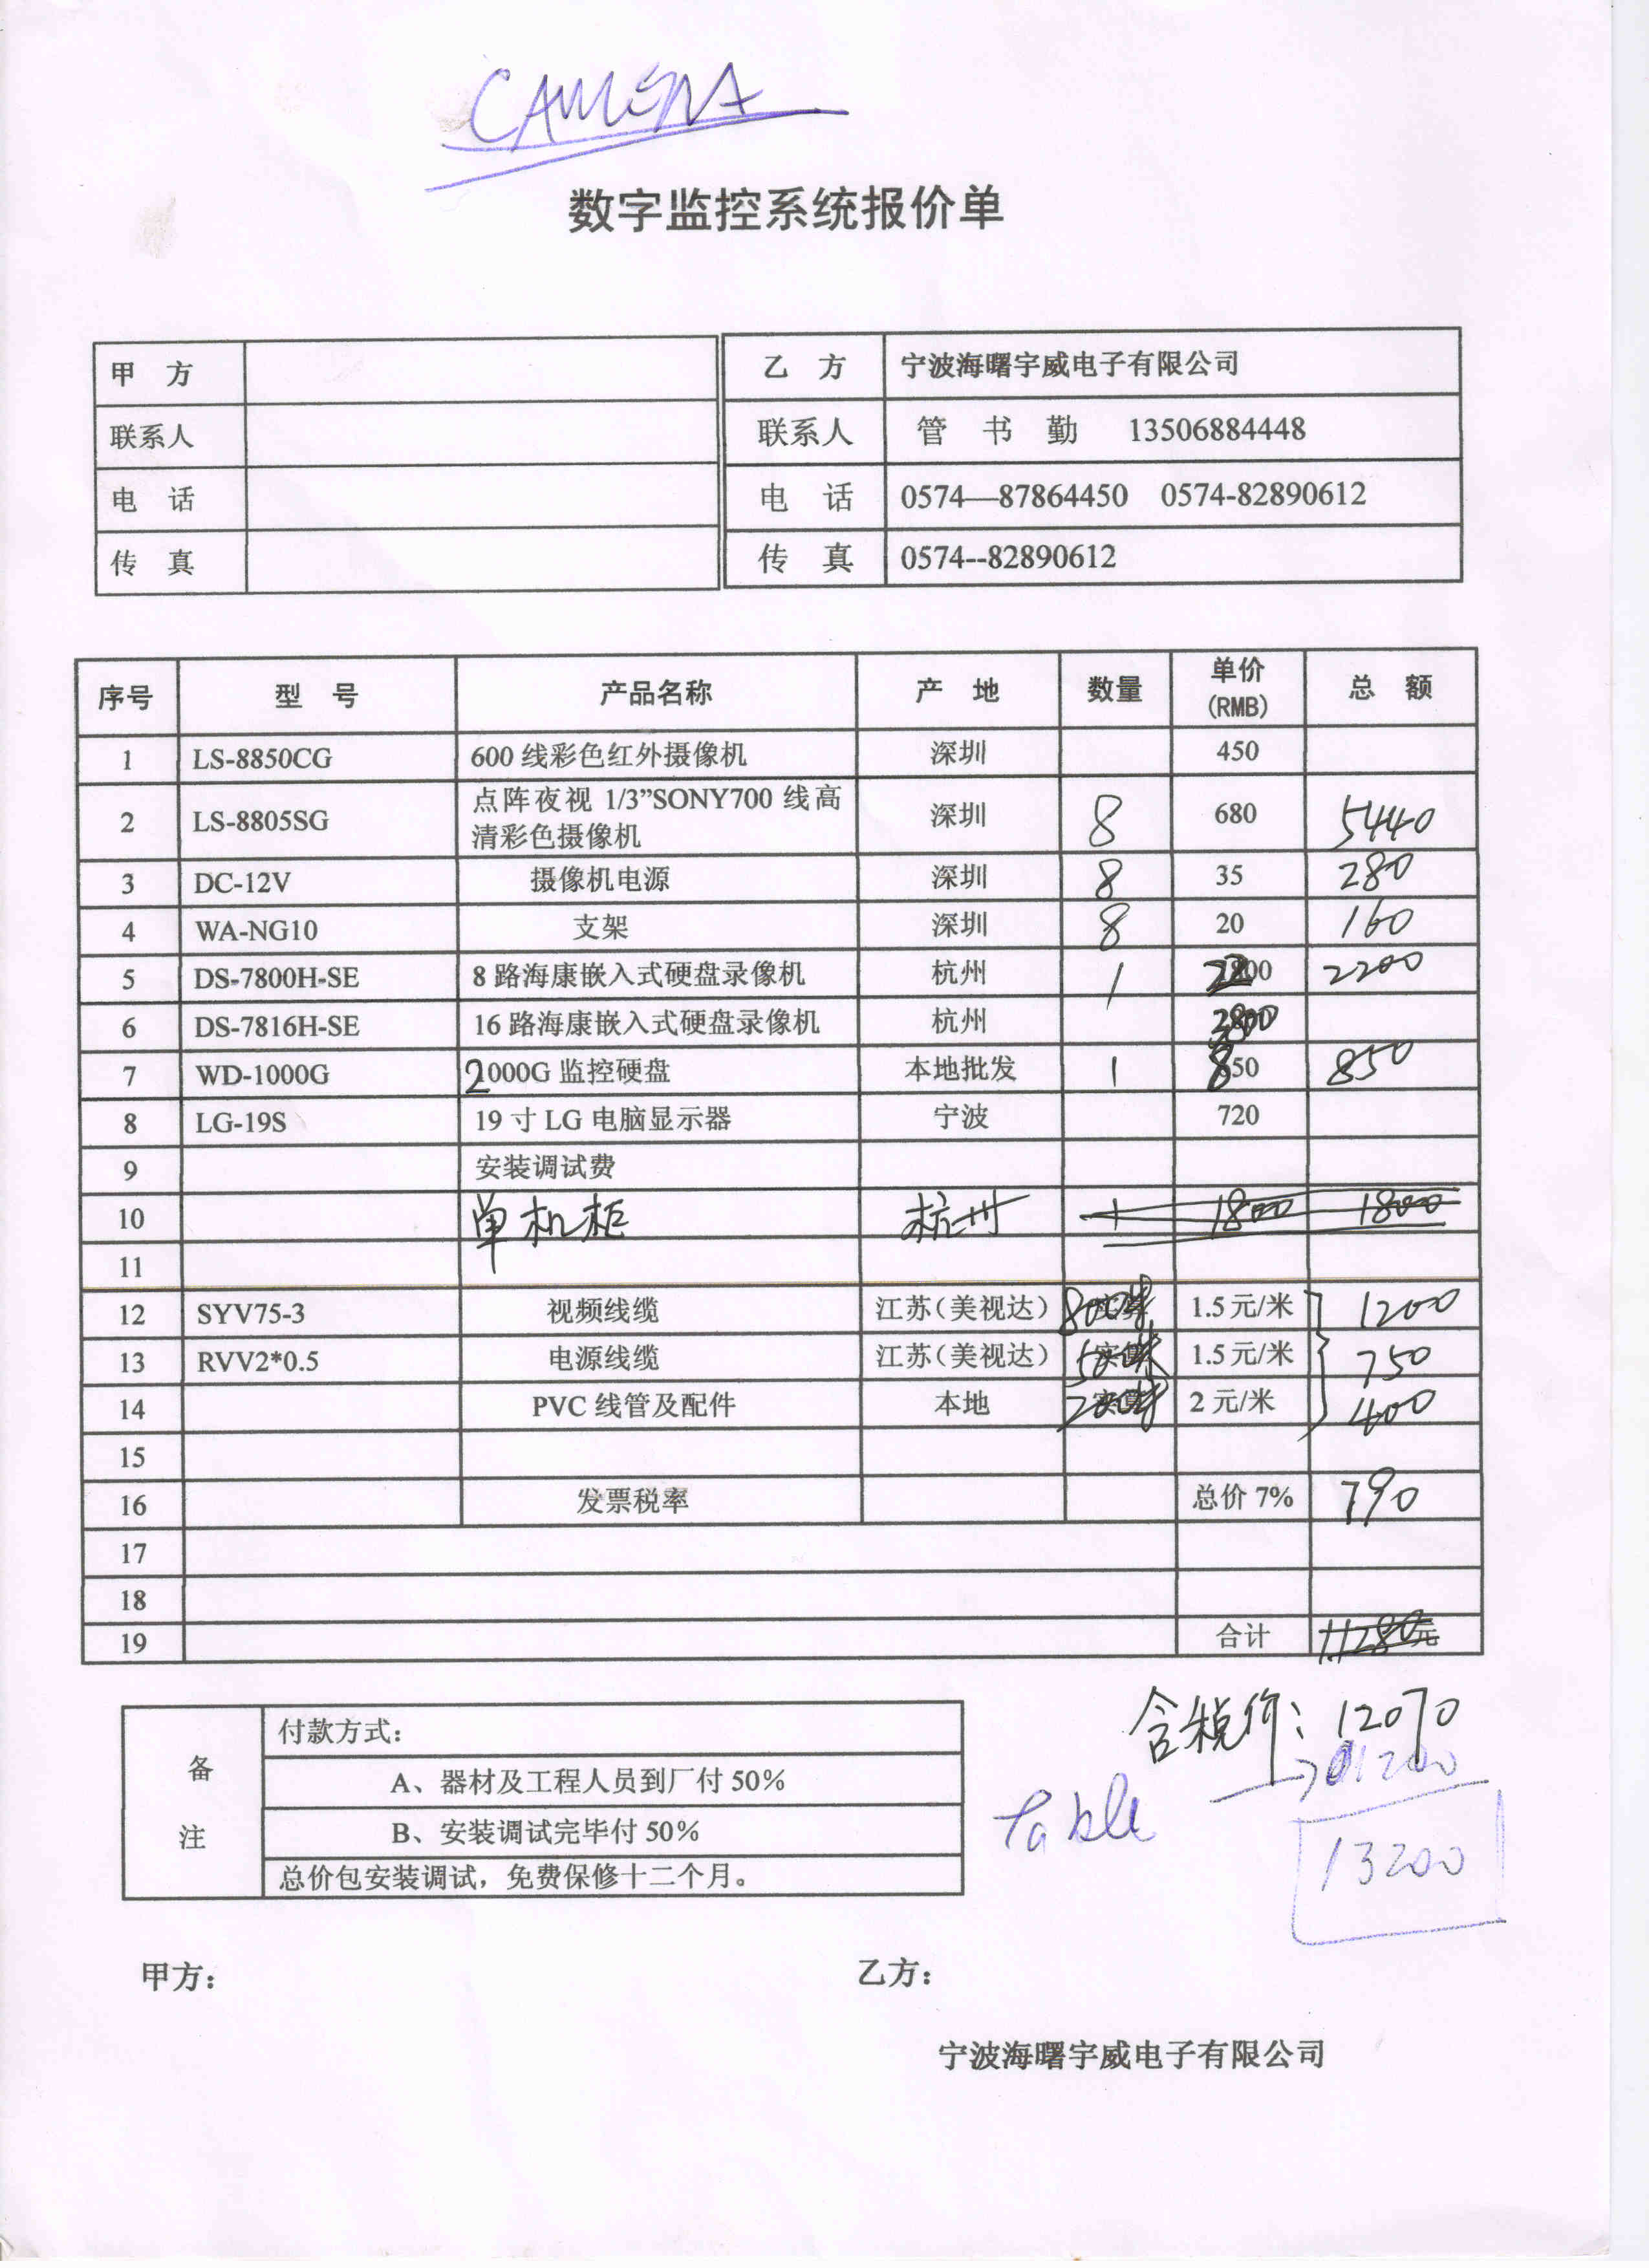 CAMERA
数字监控系统报价单
甲 方
联系人
电 话
传 真
乙 方 宁波海曙宇威电子有限公司
联系人 管 书 勤 13506884448
电 话 0574—87864450 0574-82890612
传 真 0574--82890612
序号 型 号 产品名称 产 地 数量 单价(RMB) 总 额
1 LS-8850CG 600 线彩色红外摄像机 深圳 450
2 LS-8805SG 点阵夜视 1/3”SONY700 线高 深圳 8 680 5440
清彩色摄像机
3 DC-12V 摄像机电源 深圳 8 35 280
4 WA-NG10 支架 深圳 8 20 160
5 DS-7800H-SE 8 路海康嵌入式硬盘录像机 杭州 1 2200 2200
6 DS-7816H-SE 16 路海康嵌入式硬盘录像机 杭州
7 WD-1000G 2000G 监控硬盘 本地批发 1 850 850
8 LG-19S 19 寸 LG 电脑显示器 宁波 720
9 安装调试费
10 单机柜 杭州 1 1800 1800
11
12 SYV75-3 视频线缆 江苏（美视达） 800米 1.5 元/米 1200
13 RVV2*0.5 电源线缆 江苏（美视达） 500米 1.5 元/米 750
14 PVC 线管及配件 本地 200米 2 元/米 400
15
16 发票税率 总价 7% 790
17
18
19 合计 11280元
含税价：12070
1200
table
13200
备 注
付款方式：
A、器材及工程人员到厂付 50%
B、安装调试完毕付 50%
总价包安装调试，免费保修十二个月。
甲方： 乙方：
宁波海曙宇威电子有限公司